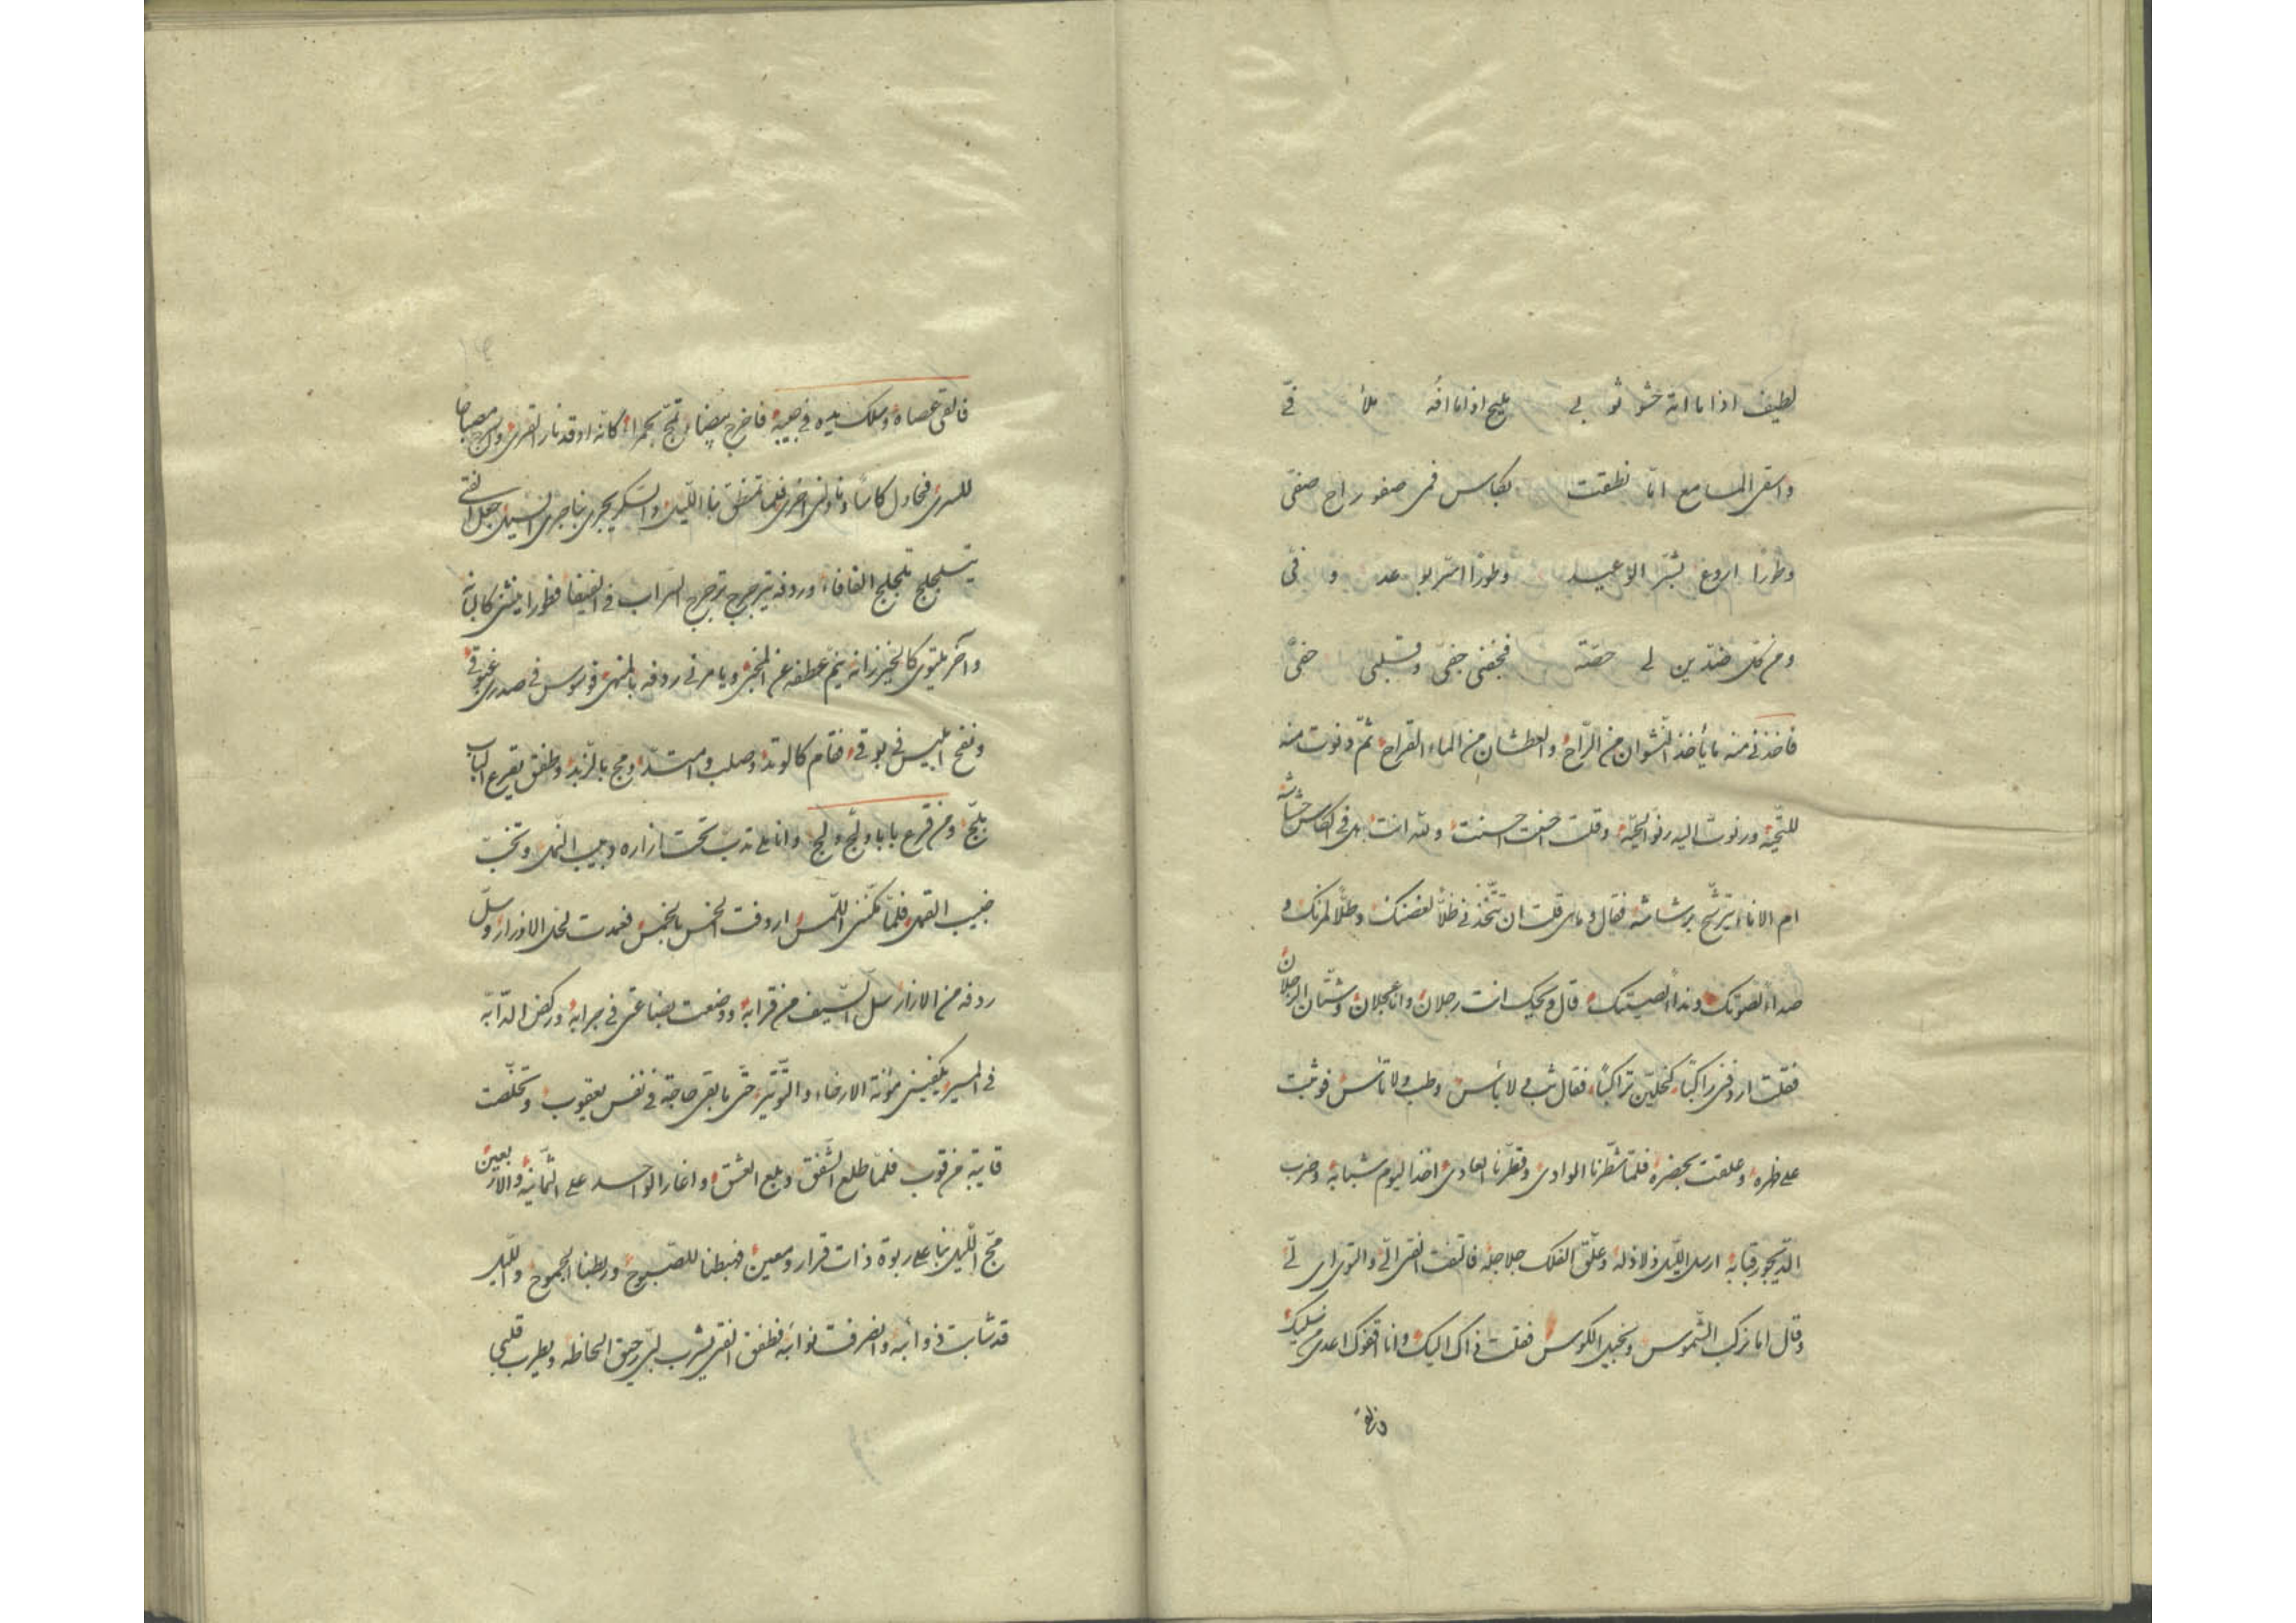 لطیف اذا ما اته خشو ثو بی ملیح اذا ما افه ملأ فیّ
واسقی المسامع امّا نطقت بکاس فمی صفو راح صفیّ
وطورًا اروع بشر الوعید وطورًا اسرّ بوعد و فیّ
ومن کلّ ضدّین لی حصّة فجفنی جفیّ وقلبی حفیّ
فاخذنی منه ما یأخذ النّشوان من الرّاح والعطشان من الماء القراح ثمّ دنوت منه
للتّحیّة ورنوت الیه رنوّ الحیّة وقلت احسنت احسنت وللّه انت بل فی الکاس حشاشة
ام الاناء یترشّح برشاشة فقال وما قلت ان تتّخذنی ظلّاً لغصنک وطلّاً لمزنک و
صداءً لصوتک ونداءً لصیتک قال ویحک انت رجلان وانا عجلان وشتّان الرّجلان
فقلت اردفنی راکبًا کنحلتین تراکبًا فقال ثب لا بأس وطب ولا تأس فوثبت
علی ظهره وعلقت بخصره فلمّا شطرنا الوادی وقطرنا الغادی اخذ الیوم شبابه وضرب
الدّیجور قبابه ارسل اللّیل ذلاذله وعلّق الفلک جلاجله فالتفت الفتی الیّ والتوی لیّ
وقال اما نرکب الشّموس ونجتلی الکوس فقلت ذاک الیک وانا اقفوک اعدی سلیک
فالقی عصاه وسلک یده فی جیبه فاخرج بیضاء تمجّ بحمراء کانّه اوقد نار القری واسرج مصباحًا
للسری فحاول کاسًا وناولنی اخری فلمّا تمطّی بنا اللّیل والسّکر یجری بنا جری السّیل جعل الفتی
یتلجلج تلجلج الفافاء وردفه یترجرج ترجرج السّراب فی الفیفاء فطورا ینثنی کالبانة
وآخر یلتوی کالخیزرانة ینمّ عطفه عن المخبر ویامرنی ردفه بالمنکر فوسوس فی صدری غبوقی
ونفخ ابلیس فی بوقی فقام کالوتد وصلب وامتدّ ومجّ بالزّبد وطفق یقرع الباب
یلجّ ومن قرع بابا ولجّ ولج وانا ملی تدبّ تحت ازاره دبیب النّمل وتخبّ
خبیب القمل فلمّا تمکّننی اللّمس اردفت الخمس بالخمس فعمدت لحلّ الازرار وسلّ
ردفه من الازار سلّ السّیف من قرابه ووضعت بضاعتی فی جرابه ورکض الدّابّة
فی المسیر یکفینی مؤنة الارخاء والتّوتیر حتّی ما بقی حاجة فی نفس یعقوب وتخلّصت
قابیة من قوب فلمّا طلع الشّفق وبلع الغسق واغار الواحد علی الثّمانیة والاربعین
مجّ اللّیل بنا علی ربوة ذات قرار ومعین فهبطنا للصّبوح وربطنا الجموح واللّیل
قد شابت ذوائبه وانصرفت نوائبه فطفق الفتی یشرب لبّی رحیق الحاظه ویطرب قلبی